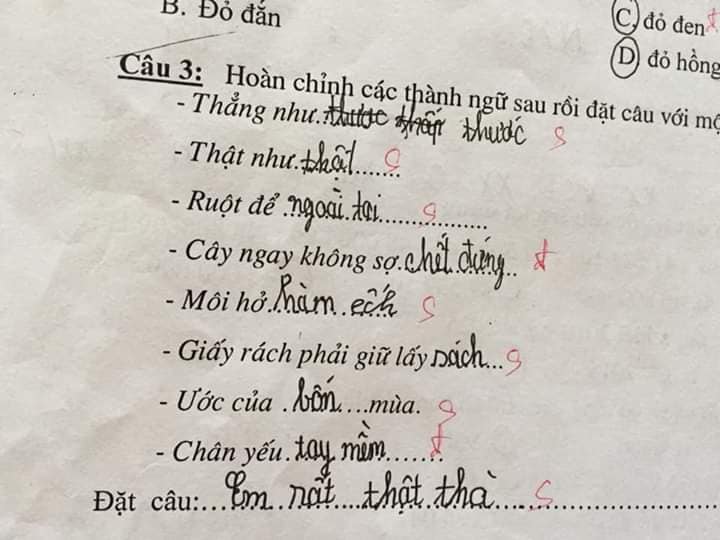 B. Đỏ đắn
C. đỏ đen đ
D. đỏ hồng
Câu 3: Hoàn chỉnh các thành ngữ sau rồi đặt câu với mộ
- Thẳng như thước thấp thước s
- Thật như thật s
- Ruột để ngoài tai s
- Cây ngay không sợ chết đứng đ
- Môi hở hàm ếch s
- Giấy rách phải giữ lấy sách s
- Ước của bốn mùa. s
- Chân yếu tay mềm đ
Đặt câu: Em rất thật thà s